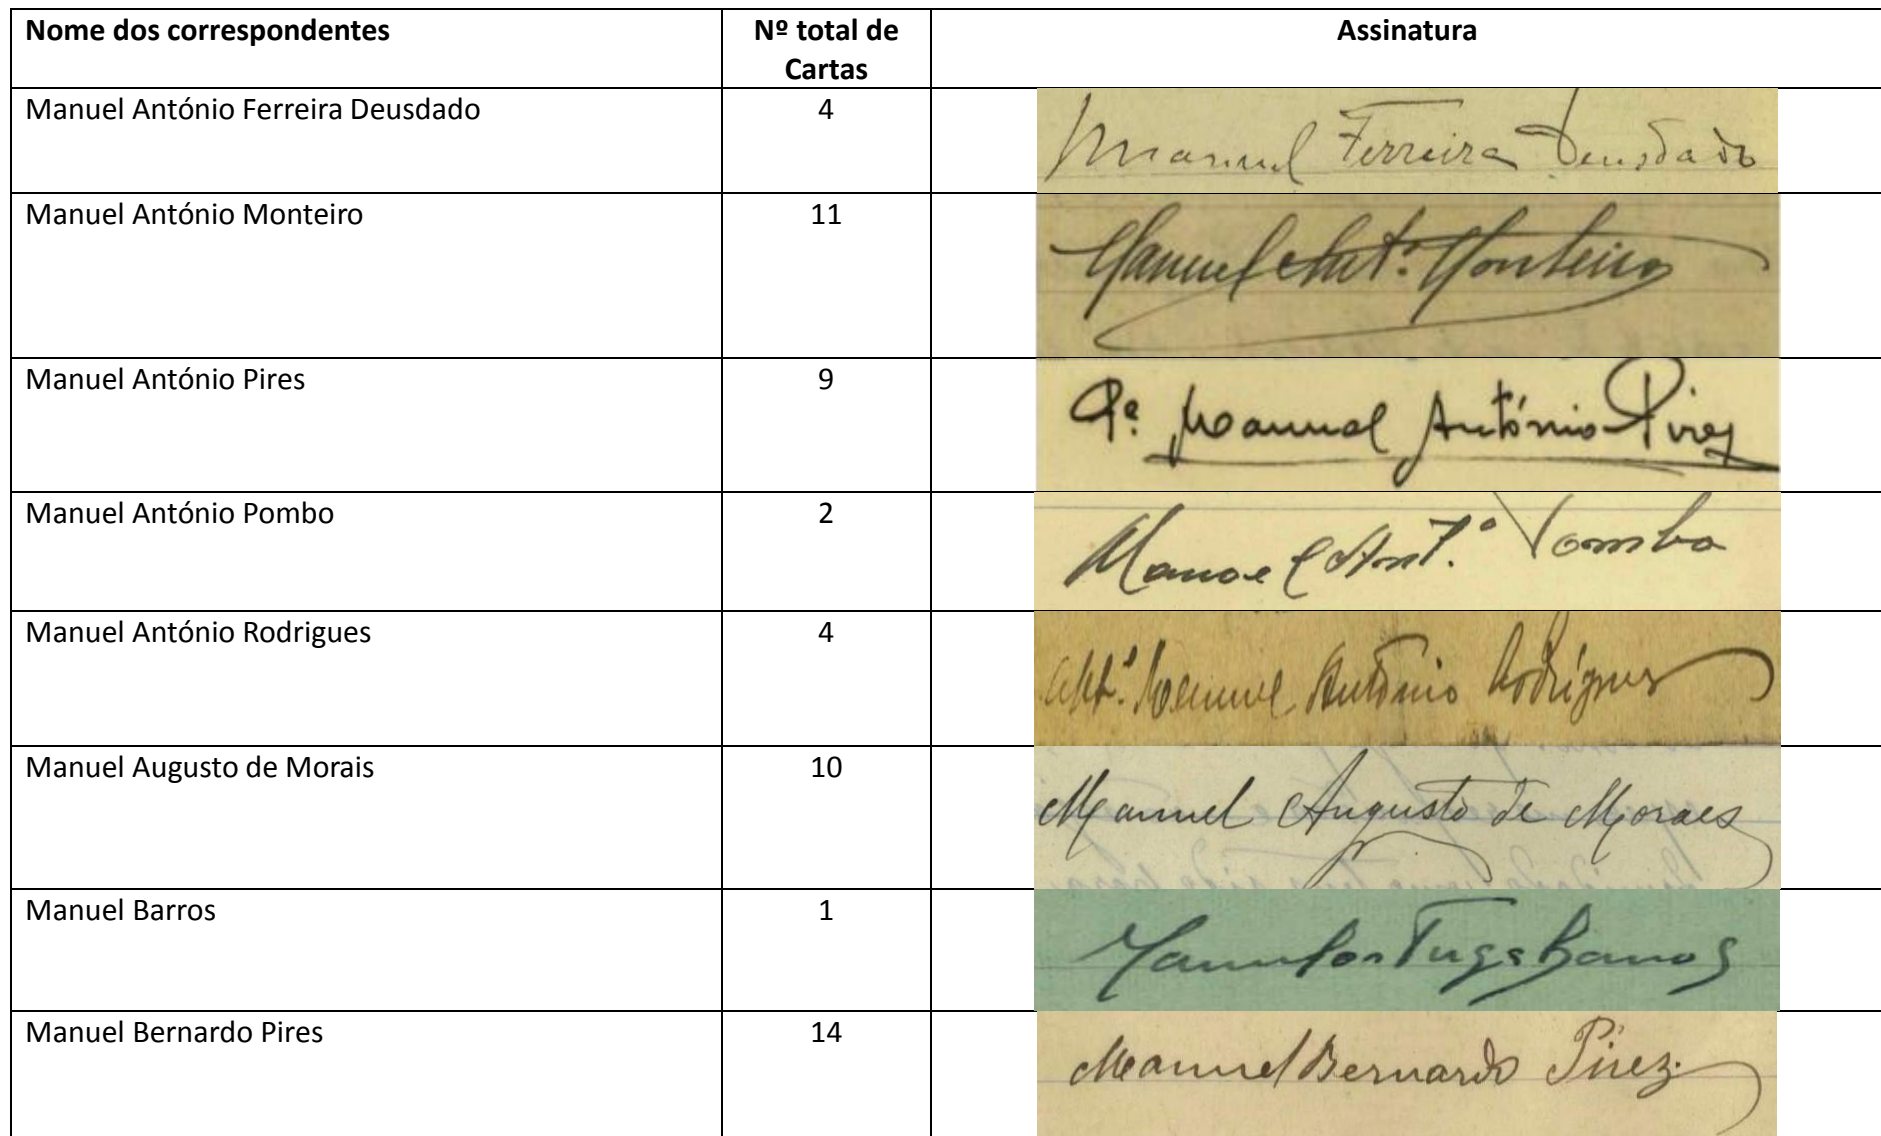 Nome dos correspondentes Nº total de Cartas Assinatura
Manuel António Ferreira Deusdado 4 Manuel Ferreira Deusdado
Manuel António Monteiro 11 Manuel Antº. Monteiro
Manuel António Pires 9 Pe. Manuel António Pires
Manuel António Pombo 2 Manoel Antº. Pombo
Manuel António Rodrigues 4 Manuel António Rodrigues
Manuel Augusto de Morais 10 Manuel Augusto de Moraes
Manuel Barros 1 Barros
Manuel Bernardo Pires 14 Manuel Bernardo Pirez.